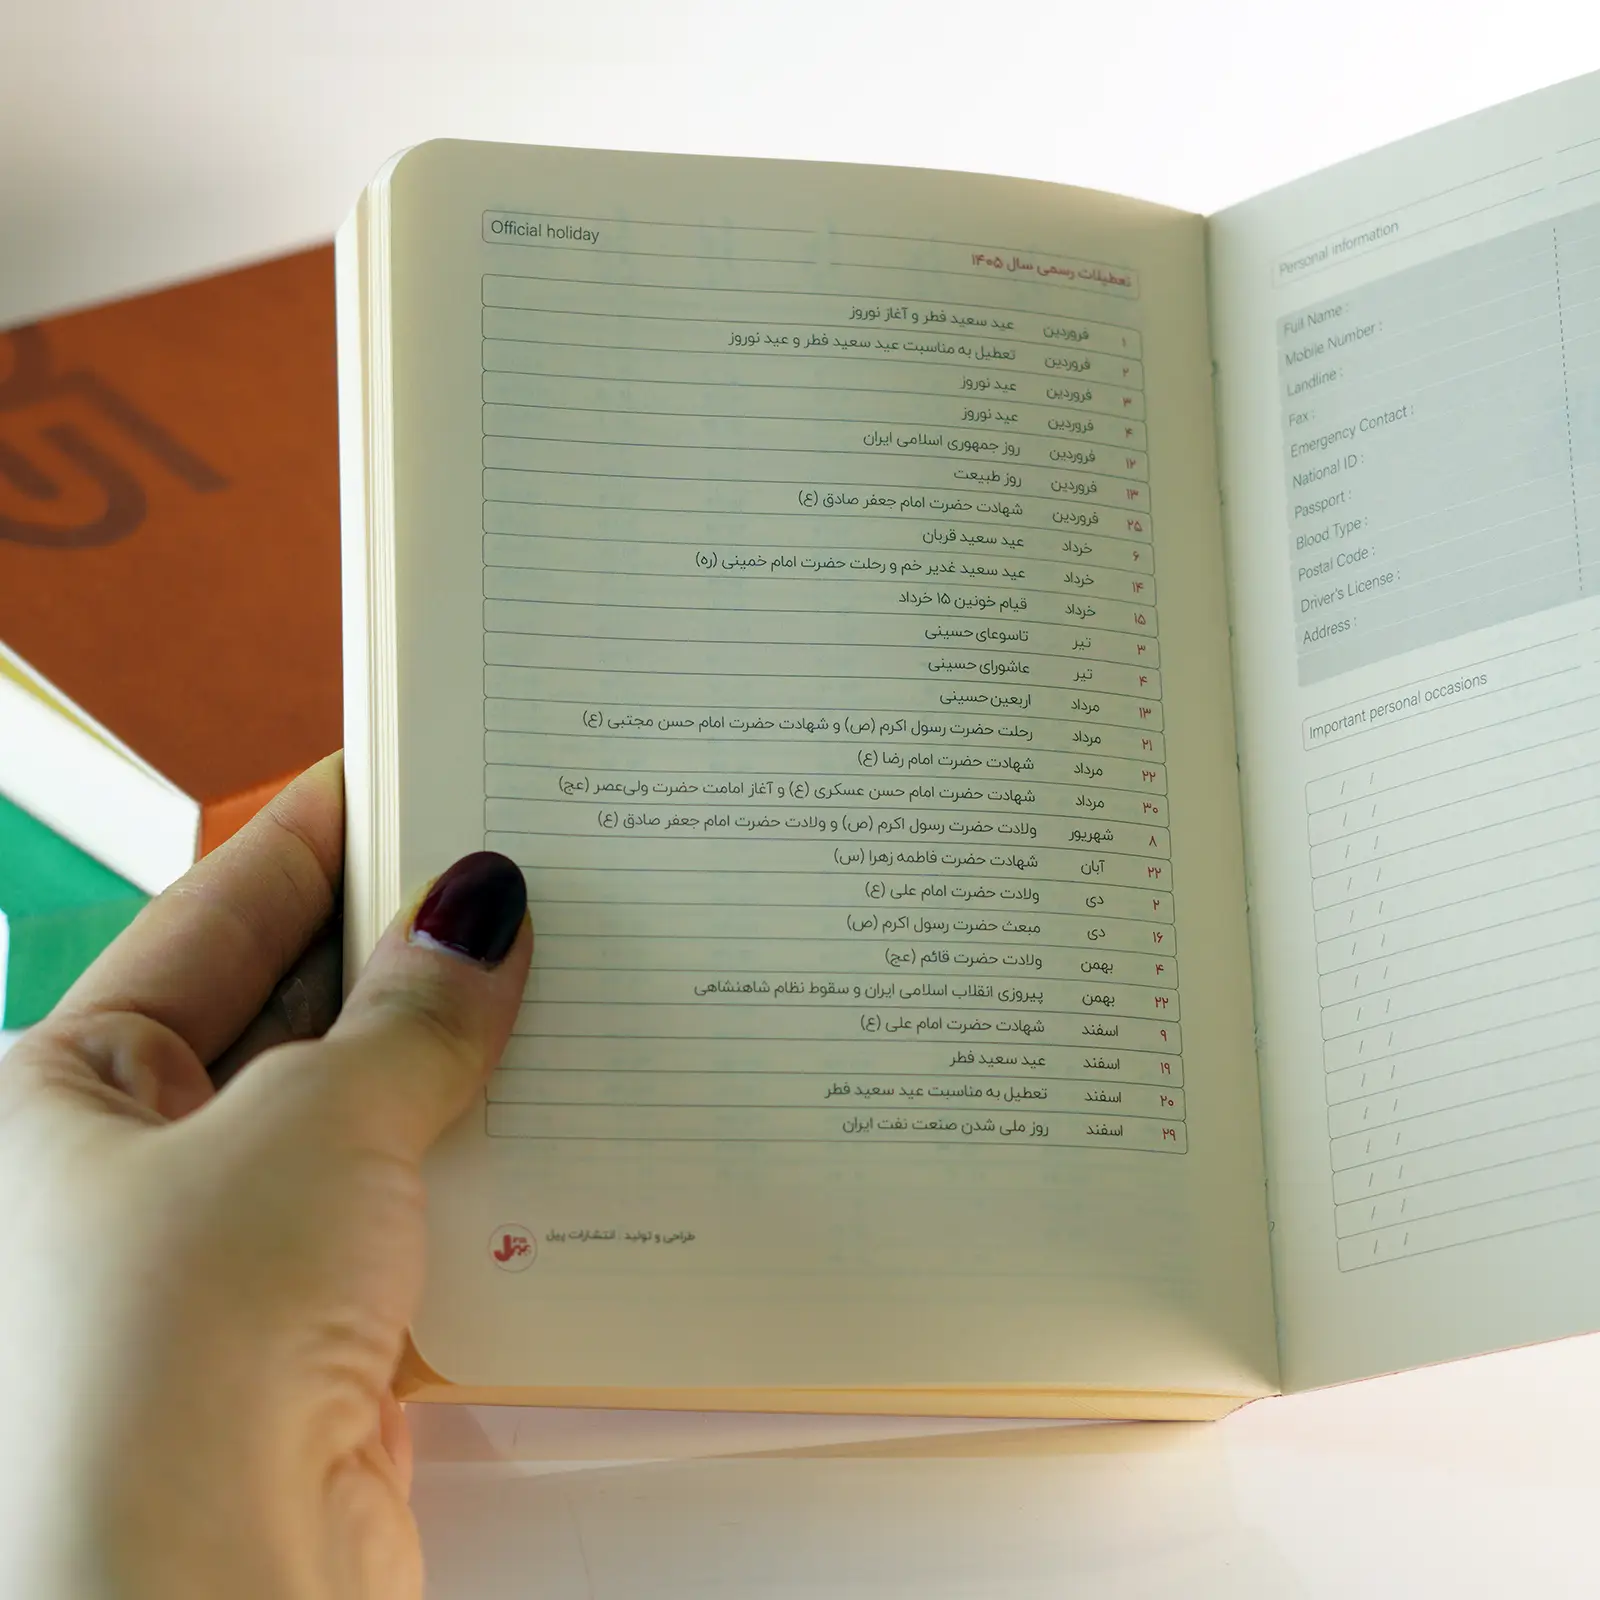 Official holiday
تعطیلات رسمی سال ۱۴۰۵
۱ فروردین عید سعید فطر و آغاز نوروز
۲ فروردین تعطیل به مناسبت عید سعید فطر و عید نوروز
۳ فروردین عید نوروز
۴ فروردین عید نوروز
۱۲ فروردین روز جمهوری اسلامی ایران
۱۳ فروردین روز طبیعت
۲۵ فروردین شهادت حضرت امام جعفر صادق (ع)
۶ خرداد عید سعید قربان
۱۴ خرداد عید سعید غدیر خم و رحلت حضرت امام خمینی (ره)
۱۵ خرداد قیام خونین ۱۵ خرداد
۳ تیر تاسوعای حسینی
۴ تیر عاشورای حسینی
۱۳ مرداد اربعین حسینی
۲۱ مرداد رحلت حضرت رسول اکرم (ص) و شهادت حضرت امام حسن مجتبی (ع)
۲۲ مرداد شهادت حضرت امام رضا (ع)
۳۰ مرداد شهادت حضرت امام حسن عسکری (ع) و آغاز امامت حضرت ولی‌عصر (عج)
۸ شهریور ولادت حضرت رسول اکرم (ص) و ولادت حضرت امام جعفر صادق (ع)
۲۲ آبان شهادت حضرت فاطمه زهرا (س)
۲ دی ولادت حضرت امام علی (ع)
۱۶ دی مبعث حضرت رسول اکرم (ص)
۴ بهمن ولادت حضرت قائم (عج)
۲۲ بهمن پیروزی انقلاب اسلامی ایران و سقوط نظام شاهنشاهی
۹ اسفند شهادت حضرت امام علی (ع)
۱۹ اسفند عید سعید فطر
۲۰ اسفند تعطیل به مناسبت عید سعید فطر
۲۹ اسفند روز ملی شدن صنعت نفت ایران
طراحی و تولید : انتشارات پیل
Personal information
Full Name :
Mobile Number :
Landline :
Fax :
Emergency Contact :
National ID :
Passport :
Blood Type :
Postal Code :
Driver's License :
Address :
Important personal occasions
/ /
/ /
/ /
/ /
/ /
/ /
/ /
/ /
/ /
/ /
/ /
/ /
/ /
/ /
/ /